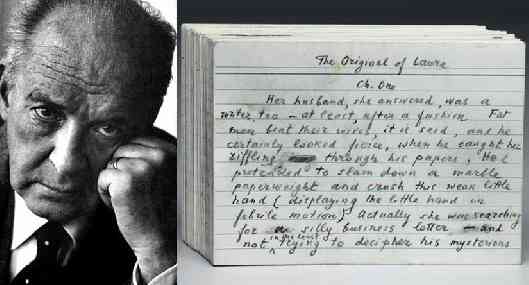 The Original of Laura
Ch. One
Her husband, she answered, was a
writer, too — at least, after a fashion. Fat
men beat their wives, it is said, and he
certainly looked fierce, when he caught her
riffling through his papers. He
pretended to slam down a marble
paperweight and crush this weak little
hand (displaying the little hand in
febrile motion) Actually she was searching
for a silly business letter — and
not in the least trying to decipher his mysterious